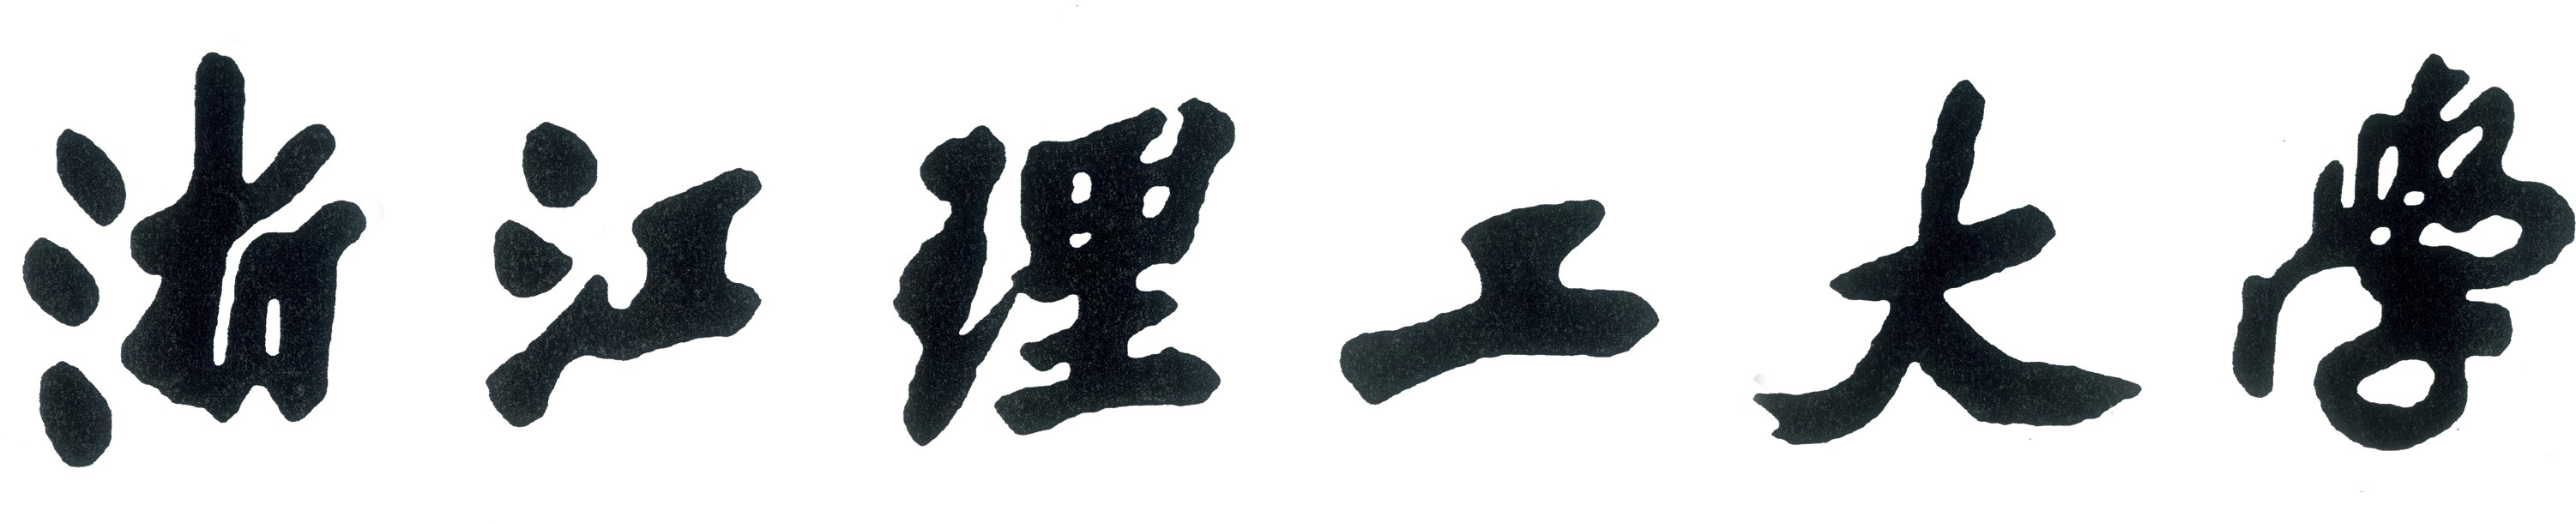 浙江理工大學